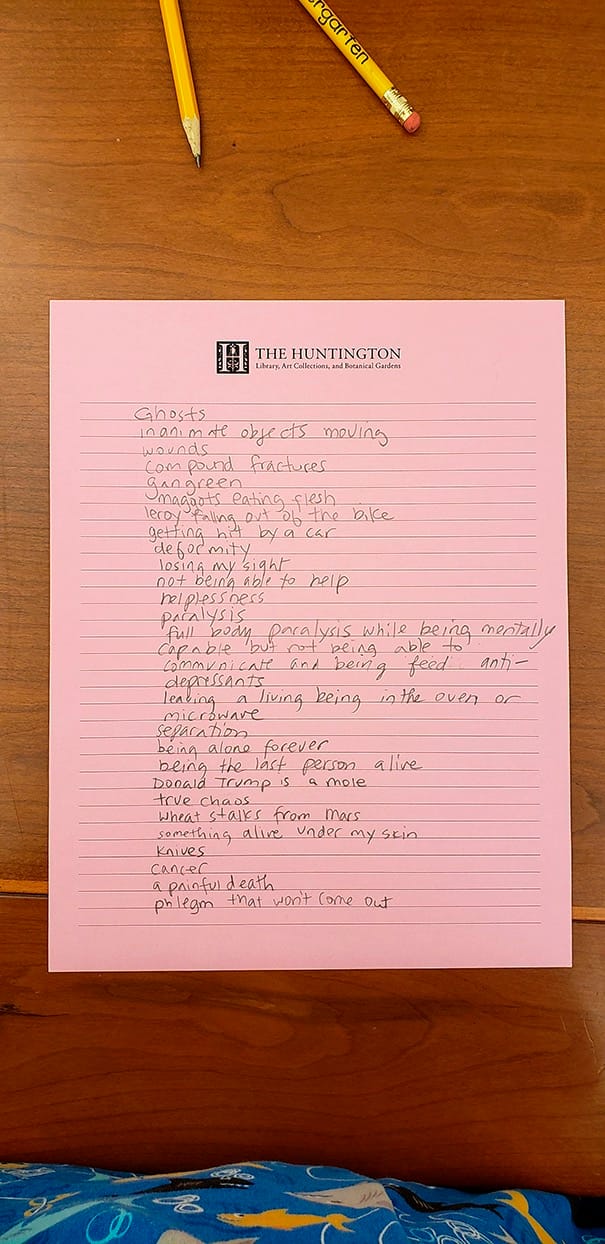 ergarten
THE HUNTINGTON
Library, Art Collections, and Botanical Gardens
Ghosts
inanimate objects moving
wounds
compound fractures
gangreen
maggots eating flesh
leroy falling out of the bike
getting hit by a car
deformity
losing my sight
not being able to help
helplessness
paralysis
full body paralysis while being mentally
capable but not being able to
communicate and being feed anti-
depressants
leaving a living being in the oven or
microwave
separation
being alone forever
being the last person alive
Donald Trump is a mole
true chaos
wheat stalks from Mars
something alive under my skin
knives
cancer
a painful death
phlegm that won't come out